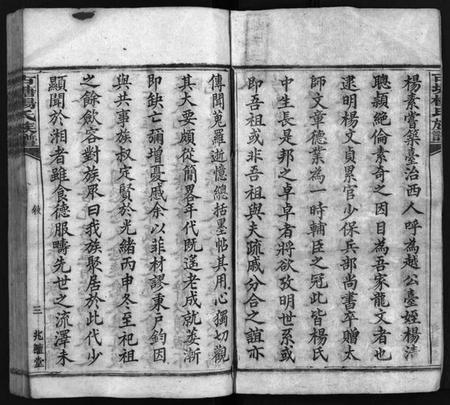 楊素嘗築臺治西人呼為越公臺姪楊清
聰穎絕倫素奇之因目為吾家龍文者也
逮明楊文貞累官少保兵部尚書卒贈太
師文章德業為一時輔臣之冠此皆楊氏
中生長是邦之卓卓者將欲攷明世系或
即吾祖或非吾祖與夫疏戚分合之誼亦
傳聞蒐羅逝憶總括墨帖其用心獨切觀
其大要頗從簡畧年代既遙老成就萎漸
即缺亡彌增憂戚余以菲材謬東戶鈞因
與共事族叔定賢於光緒丙申冬至祀祖
之餘飲容對族眾曰我族聚居於此代少
顯聞於湘者雖食德服疇先世之流澤未
楊氏族譜
敘
三
兆麓堂